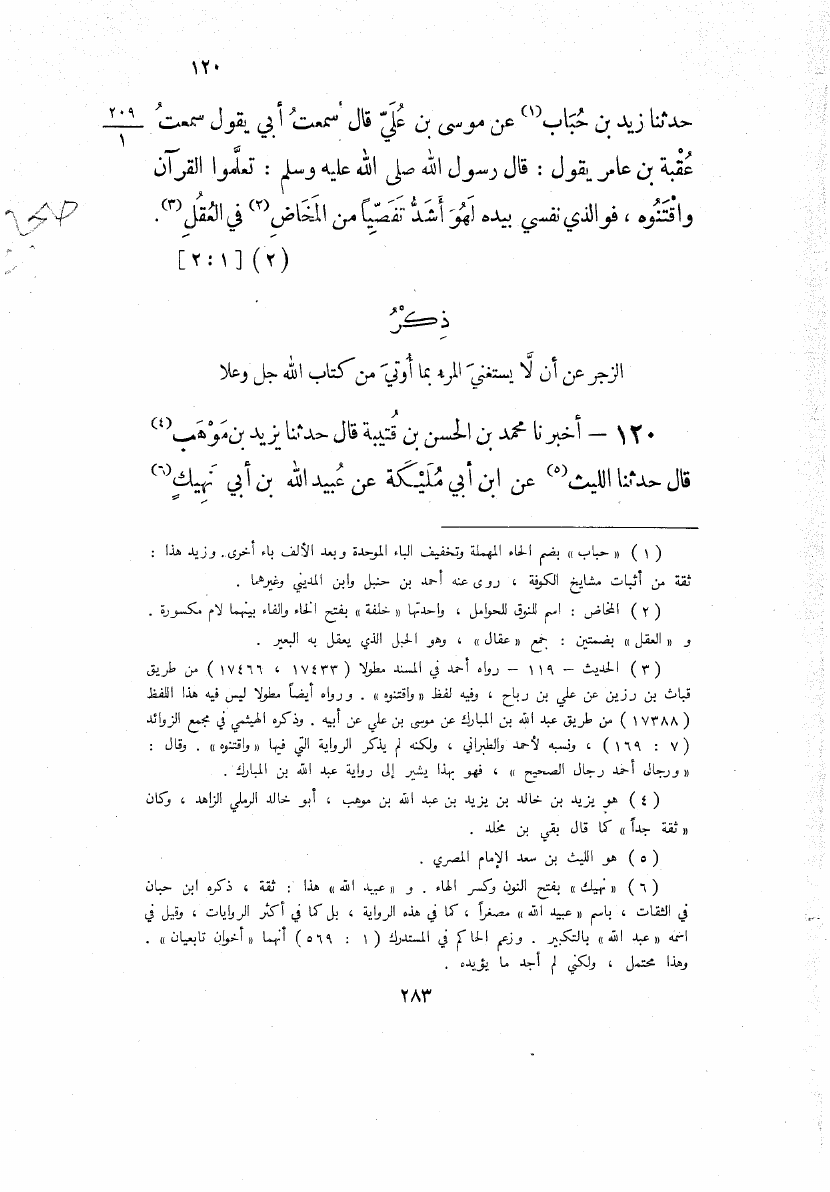 ١٢٠
حدثنا زيد بن حُبَاب(١) عن موسى بن عُلَيّ قال سمعتُ أبي يقول سمعتُ ٢٠٩
١
عُقْبة بن عامر يقول : قال رسول الله صلى الله عليه وسلم : تعلَّموا القرآن
واقْتَنُوه ، فوالذي نفسي بيده لَهُوَ أَشَدُّ تَفَصِّياً من المَخَاضِ(٢) في العُقُلِ(٣).
(٢) [٢:١]
ذِكْرُ
الزجر عن أن لَّا يستغنيَ المرء بما أُوتيَ من كتاب الله جل وعلا
١٢٠ – أخبرنا محمد بن الحسن بن قُتيبة قال حدثنا يزيد بن مَوْهَب(٤)
قال حدثنا الليث(٥) عن ابن أبي مُلَيْكَة عن عُبيد الله بن أبي نَهِيكٍ(٦)
(١) « حباب » بضم الحاء المهملة وتخفيف الباء الموحدة وبعد الألف باء أخرى. وزيد هذا :
ثقة من أثبات مشايخ الكوفة ، روى عنه أحمد بن حنبل وابن المديني وغيرهما .
(٢) المخاض : اسم للنوق للحوامل ، واحدتها « خلفة » بفتح الخاء والفاء بينهما لام مكسورة .
و « العقل » بضمتين : جمع « عقال » ، وهو الحبل الذي يعقل به البعير .
(٣) الحديث – ١١٩ – رواه أحمد في المسند مطولا (١٧٤٣٣ ، ١٧٤٦٦) من طريق
قباث بن رزين عن علي بن رباح ، وفيه لفظ « واقتنوه » . ورواه أيضاً مطولا ليس فيه هذا اللفظ
(١٧٣٨٨) من طريق عبد الله بن المبارك عن موسى بن علي عن أبيه . وذكره الهيثمي في مجمع الزوائد
(٧ : ١٦٩) ، ونسبه لأحمد والطبراني ، ولكنه لم يذكر الرواية التي فيها « واقتنوه » . وقال :
« ورجال أحمد رجال الصحيح » ، فهو بهذا يشير إلى رواية عبد الله بن المبارك .
(٤) هو يزيد بن خالد بن يزيد بن عبد الله بن موهب ، أبو خالد الرملي الزاهد ، وكان
« ثقة جداً » كما قال بقي بن مخلد .
(٥) هو الليث بن سعد الإمام المصري .
(٦) « نهيك » بفتح النون وكسر الهاء . و « عبيد الله » هذا : ثقة ، ذكره ابن حبان
في الثقات ، باسم « عبيد الله » مصغراً ، كما في هذه الرواية ، بل كما في أكثر الروايات ، وقيل في
اسمه « عبد الله » بالتكبير . وزعم الحاكم في المستدرك (١ : ٥٦٩) أنهما « أخوان تابعيان » .
وهذا محتمل ، ولكني لم أجد ما يؤيده .
٢٨٣